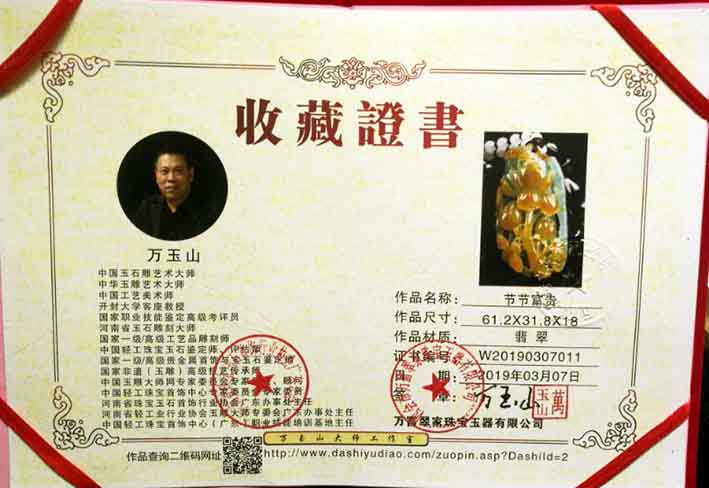 收藏證書
万玉山
中国玉石雕艺术大师
中华玉雕艺术大师
中国工艺美术师
开封大学客座教授
国家职业技能鉴定高级考评员
河南省玉石雕刻大师
国家一级/高级工艺品雕刻师
中国轻工珠宝玉石鉴定师、评估师
国家一级/高级贵金属首饰与宝玉石鉴定师
国家非遗(玉雕)高级技艺传承师
中国玉雕大师网专家委员会专家 顾问
中国轻工珠宝首饰中心专家委员会专家委员
河南省珠宝玉石首饰行业协会广东办事处主任
河南省轻工业行业协会玉雕大师专委会广东办事处主任
中国轻工珠宝首饰中心(广东)职业技能培训基地主任
作品名称: 节节富贵
作品尺寸: 61.2X31.8X18
作品材质: 翡翠
证书编号: W20190307011
2019年03月07日
章: 万玉山
萬玉山
万晋翠家珠宝玉器有限公司
万玉山大师工作室
作品查询二维码网址
http://www.dashiyudiao.com/zuopin.asp?DashiId=2